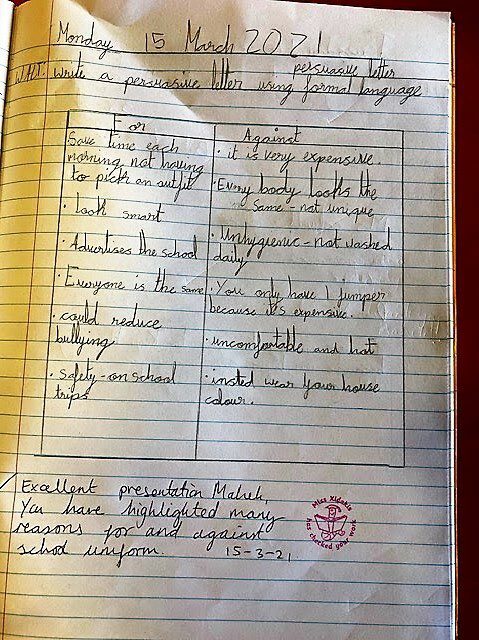 Monday 15 March 2021
persuasive letter
WALT: write a persuasive letter using formal language
For
Save time each
morning not having
to pick an outfit
· look smart
· Advertises the school
· Everyone is the same
· could reduce
bullying
· Safety - on school
trips
Against
· it is very expensive.
· Every body looks the
same - not unique
· Unhygienic - not washed
daily
· You only have 1 jumper
because it's expensive.
· uncomfortable and hot
· insted wear your house
colour.
Excellent presentation
You have highlighted many
reasons for and against
school uniform. 15-3-21
Miss
has checked your work